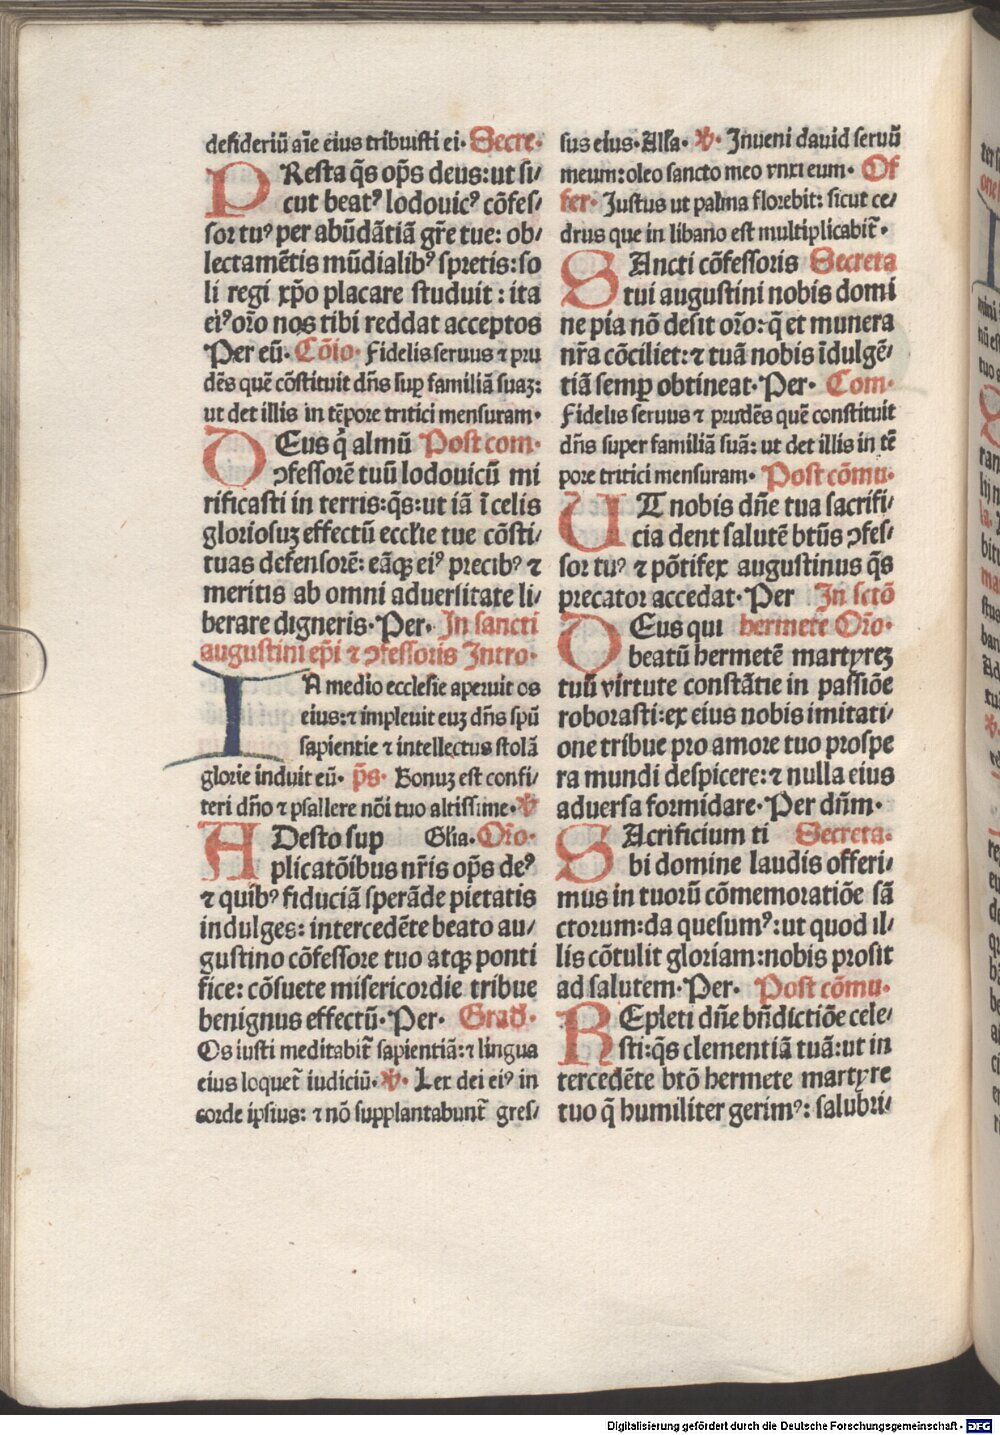 desideriū aīe eius tribuisti ei· Secre·
PResta q̄s op̄s deus: ut si/
cut beatꝰ lodouicꝰ cōfes/
sor tuꝰ per abūdātiā gr̄e tue: ob/
lectamētis mūdialibꝰ spretis: so
li regi xp̄o placare studuit: ita
eiꝰ or̄o nos tibi reddat acceptos
Per eū· Cōio· Fidelis seruus ⁊ pru
dēs quē cōstituit dn̄s suꝑ familiā suaꝫ:
ut det illis in tēpore tritici mensuram·
DEus q̄ almū Post com·
ꝯfessorē tuū lodouicū mi
rificasti in terris: q̄s: ut iā ī celis
gloriosuꝫ effectū eccl'ie tue cōsti/
tuas defensorē: eāqꝫ eiꝰ precibꝰ ⁊
meritis ab omni aduersitate li/
berare digneris· Per· In sancti
augustini ep̄i ⁊ ꝯfessoris Intro·
IN medio ecclesie aperuit os
eius: ⁊ impleuit euꝫ dn̄s sp̄ū
sapientie ⁊ intellectus stolā
glorie induit eū· p̄s· Bonuꝫ est confi/
teri dn̄o ⁊ psallere nōi tuo altissime· ℣
ADesto sup Gl'ia· Or̄o·
plicatōibus nr̄is op̄s deꝰ
⁊ quibꝰ fiduciā sperāde pietatis
indulges: intercedēte beato au/
gustino cōfessore tuo atqꝫ ponti
fice: cōsuete misericordie tribue
benignus effectū· Per· Grad̄·
Os iusti meditabit᷑ sapientiā: ⁊ lingua
eius loquet᷑ iudiciū· ℣· Lex dei eiꝰ in
corde ipsius: ⁊ nō supplantabunt᷑ gres/
sus eius· All'a· ℣· Inueni dauid seruū
meum: oleo sancto meo vnxi eum· Of
fer· Iustus ut palma florebit: sicut ce/
drus que in libano est multiplicabit᷑·
SAncti cōfessoris Secreta
tui augustini nobis domi
ne pia nō desit or̄o: q̄ et munera
nr̄a cōciliet: ⁊ tuā nobis īdulgē/
tiā semꝑ obtineat· Per· Com·
Fidelis seruus ⁊ prudēs quē constituit
dn̄s super familiā suā: ut det illis in tē
pore tritici mensuram· Post cōmu·
UT nobis dn̄e tua sacrifi/
cia dent salutē btūs ꝯfes/
sor tuꝰ ⁊ pōtifex augustinus q̄s
precator accedat· Per In sctō
DEus qui hermete Or̄o·
beatū hermetē martyreꝫ
tuū virtute constātie in passiōe
roborasti: ex eius nobis imitati/
one tribue pro amore tuo prospe
ra mundi despicere: ⁊ nulla eius
aduersa formidare· Per dn̄m·
SAcrificium ti Secreta·
bi domine laudis offeri/
mus in tuorū cōmemoratiōe sā
ctorum: da quesumꝰ: ut quod il/
lis cōtulit gloriam: nobis prosit
ad salutem· Per· Post cōmu·
REpleti dn̄e bn̄dictiōe cele/
sti: q̄s clementiā tuā: ut in
tercedēte btō hermete martyre
tuo q̄ humiliter gerimꝰ: salubri/
Digitalisierung gefördert durch die Deutsche Forschungsgemeinschaft - DFG